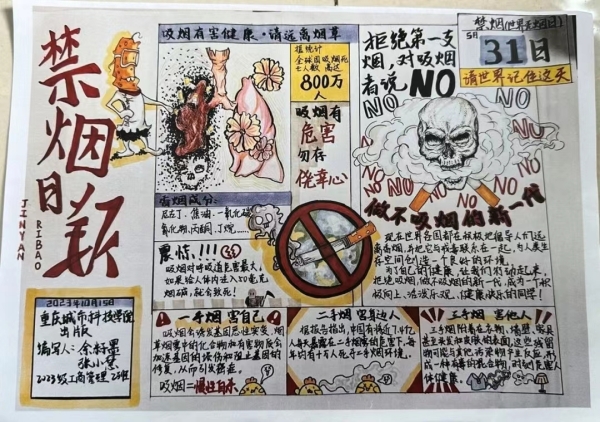 禁烟日新
JINYAN
RIBAO
2023年10月15日
重庆城市科技学院
出版
编写人:
2023级工商管理
吸烟有害健康·请远离烟草
据统计
全球因吸烟死
亡人数高达
800万
人
吸烟有
危害
勿存
侥幸心
香烟成分:
尼古丁、焦油、一氧化碳
氰化物、丙酮、丁烷……
震惊!!!
吸烟对呼吸道危害最大,
如果给人体内注入50毫克
烟碱,就会致死!
拒绝第一支
烟,对吸烟
者说NO
禁烟(世界无烟日)
5月
31日
请世界记住这天
NO
NO
NO
NO
NO
NO
NO
NO
做不吸烟的新一代
现在世界各国都在积极地倡导人们远
离香烟,
存空间创造一个良好的环境。
为了自己的健康,让我们行动起来,
拒绝吸烟,做不吸烟的新一代,成为一个积
极向上、活泼乐观、健康快乐的同学!
一手烟 害自己
吸烟会诱发基因恶性突变,烟
草烟雾中的化合物和有害物质会
加速基因的损伤和阻止基因的
修复,从而引发癌症。
吸烟=慢性自杀
二手烟 害身边人
据报告指出,中国有将近7.4亿
人每天暴露在二手烟雾的危害下,每
年约有十万人死于二手烟环境。
三手烟 害他人
体健康。